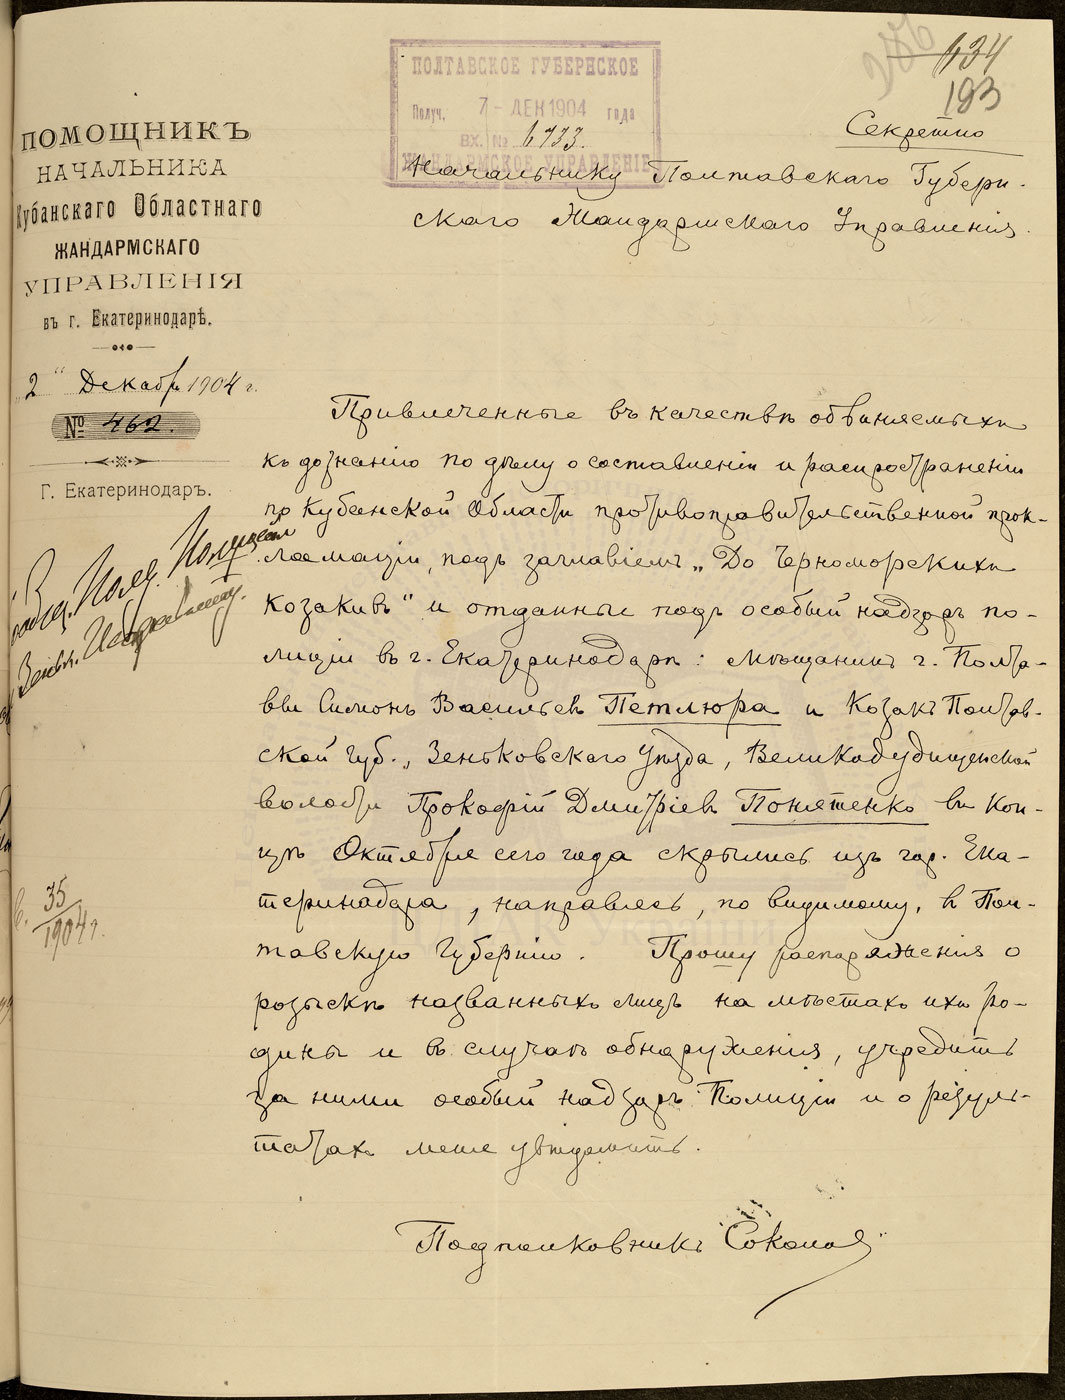 634
193
ПОЛТАВСКОЕ ГУБЕРНСКОЕ
Получ. 7 - ДЕК 1904 года
ВХ. № 6933.
ЖАНДАРМСКОЕ УПРАВЛЕНІЕ
Секретно
ПОМОЩНИКЪ
НАЧАЛЬНИКА
Кубанскаго Областнаго
ЖАНДАРМСКАГО
УПРАВЛЕНІЯ
въ г. Екатеринодарѣ.
„2“ Декабря 1904 г.
№ 462.
Г. Екатеринодаръ.
Начальнику Полтавскаго Губерн-
скаго Жандармскаго Управленія.
Привлеченные въ качествѣ обвиняемыхъ
къ дознанію по дѣлу о составленіи и распространеніи
по Кубанской Области противоправительственной прок-
ламаціи, подъ заглавіемъ „До Черноморскихъ
Козакивъ“ и отданные подъ особый надзоръ по-
лиціи въ г. Екатеринодарѣ: мѣщанинъ г. Полта-
вы Симонъ Васильевъ Петлюра и козакъ Полтав-
ской губ., Зеньковскаго Уѣзда, Великобудищенской
волости Прокофій Дмитріевъ Понятенко въ кон-
цѣ Октября сего года скрылись изъ гор. Ека-
теринодара, направясь, по видимому, въ Пол-
тавскую Губернію. Прошу распоряженія о
розыскѣ названныхъ лицъ на мѣстахъ ихъ ро-
дины и въ случаѣ обнаруженія, учредить
за ними особый надзоръ Полиціи и о резуль-
татахъ меня увѣдомить.
Подполковникъ Соколов
Полт. Полицей
Зеньк. Исправнику.
35
1904 г.